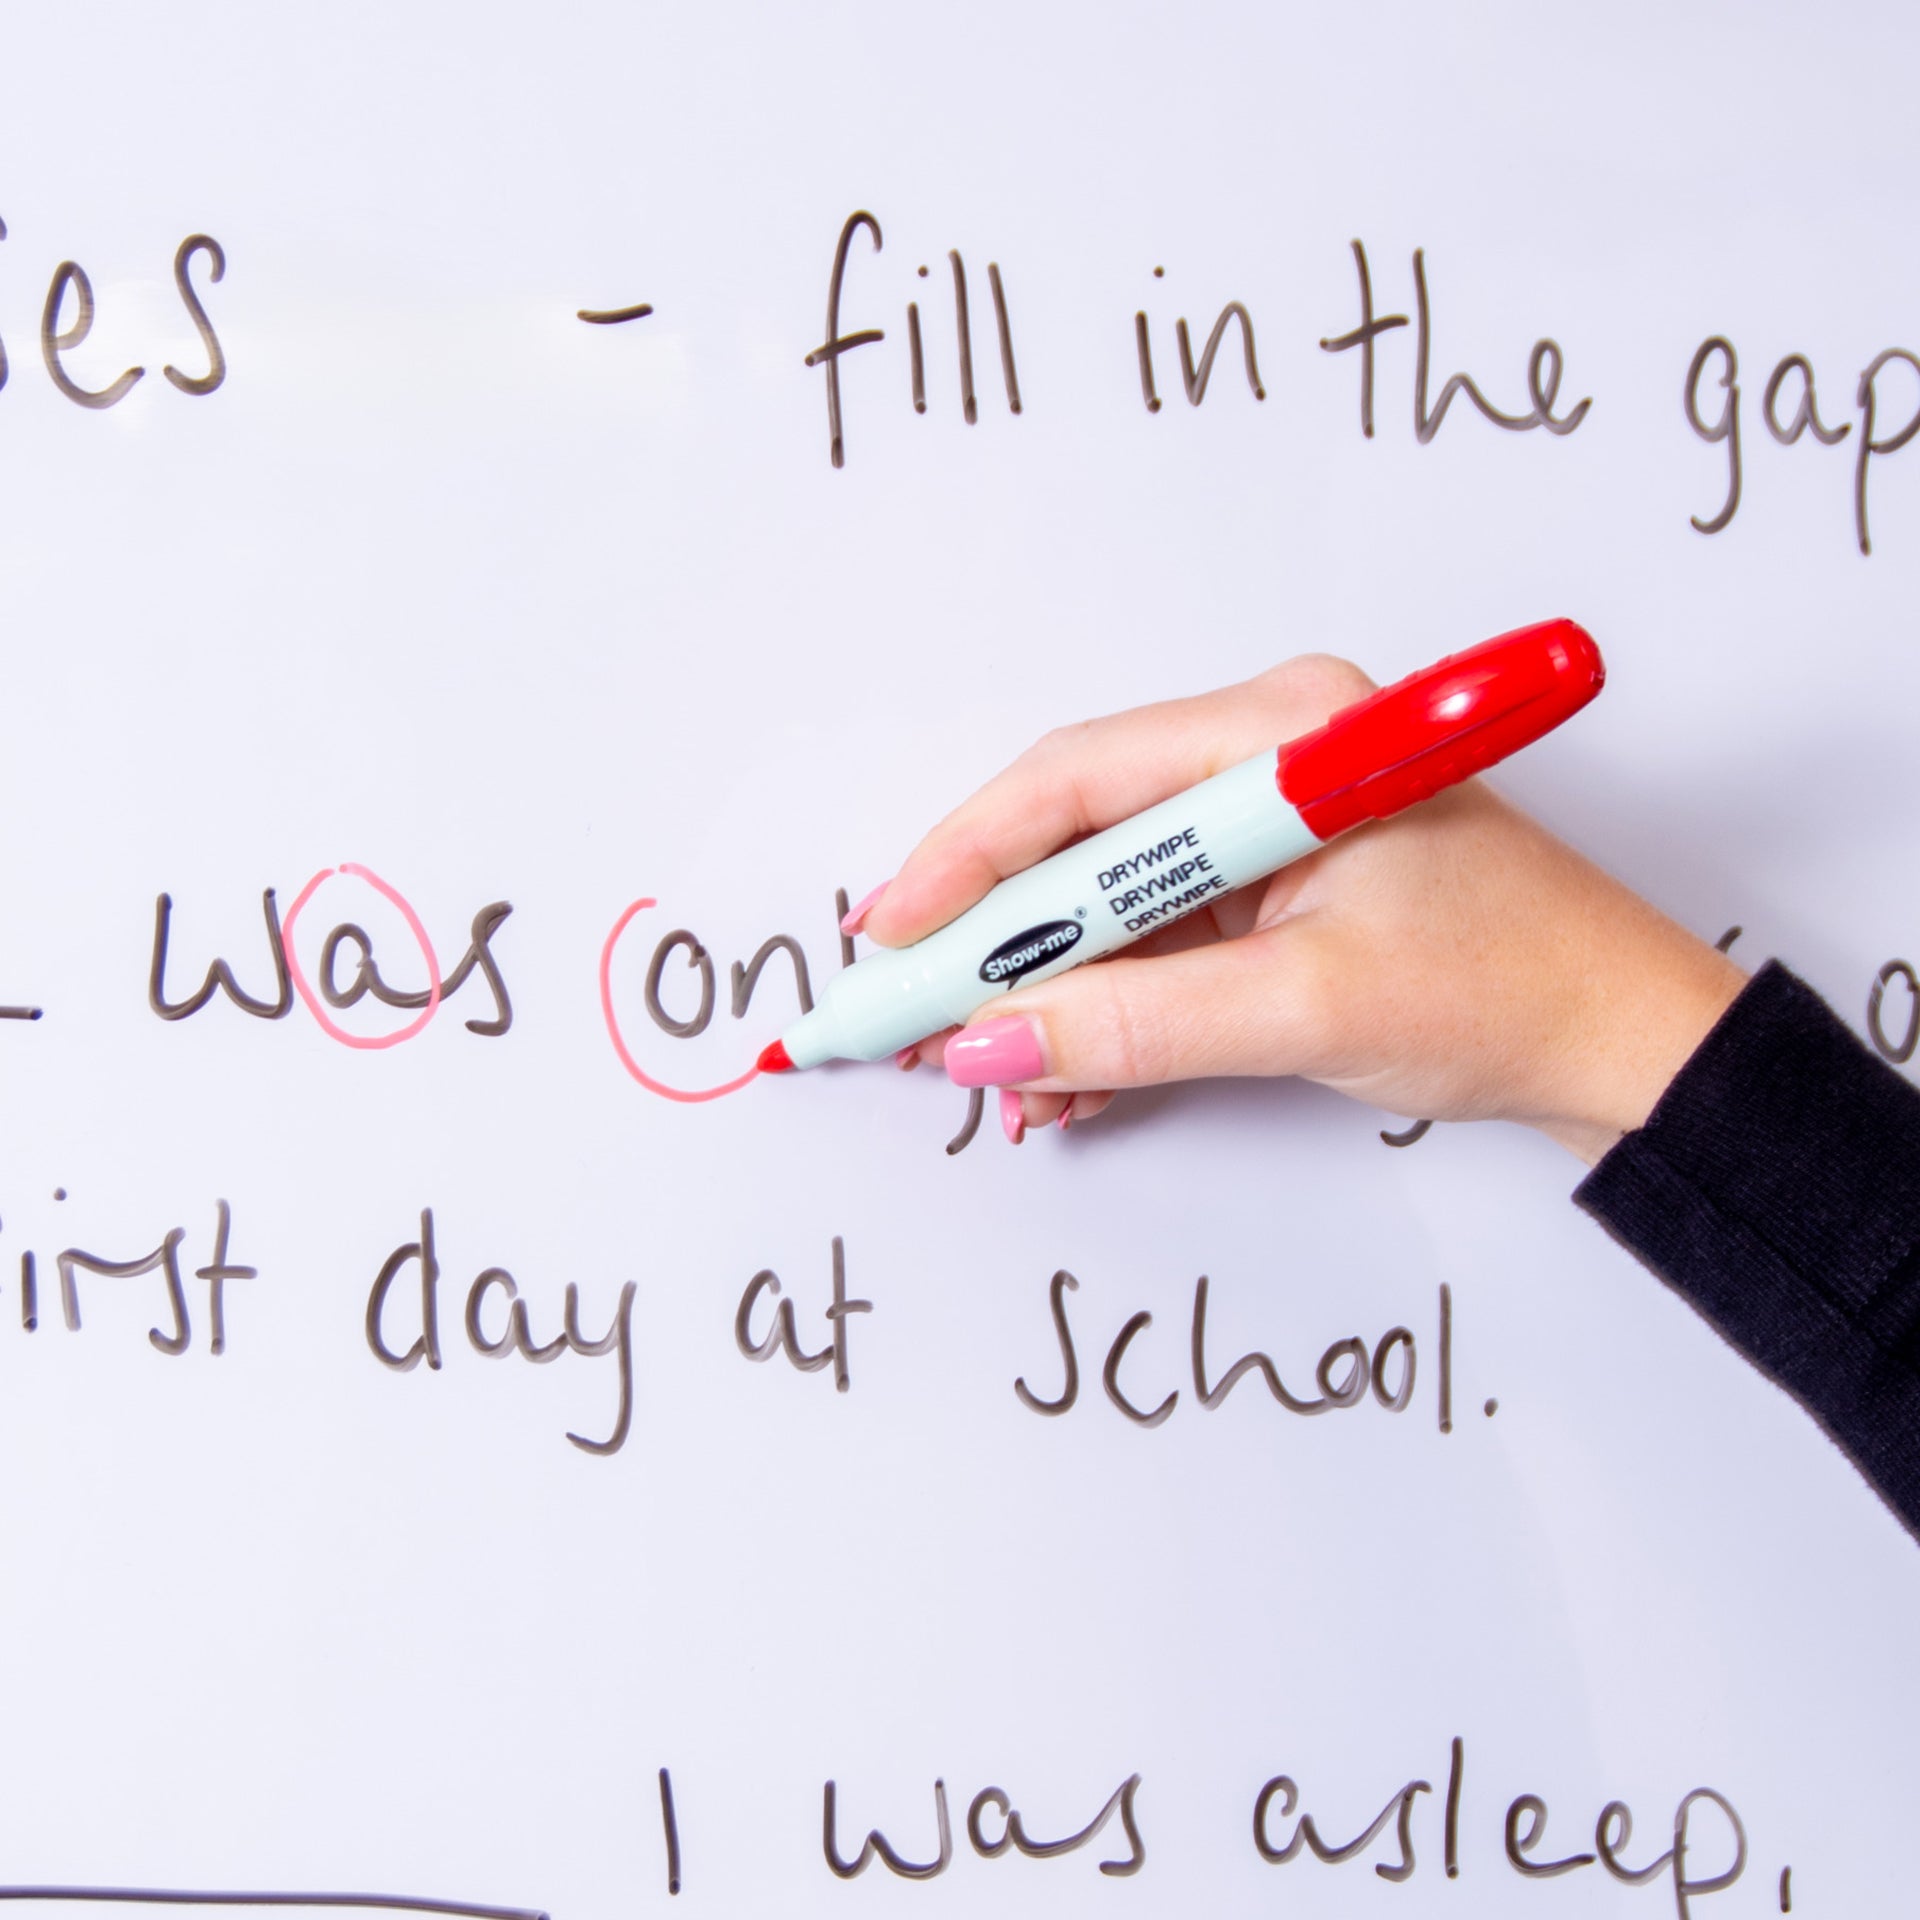 es - fill in the gap
was only
first day at school.
I was asleep,
Show-me®
DRYWIPE
DRYWIPE
DRYWIPE